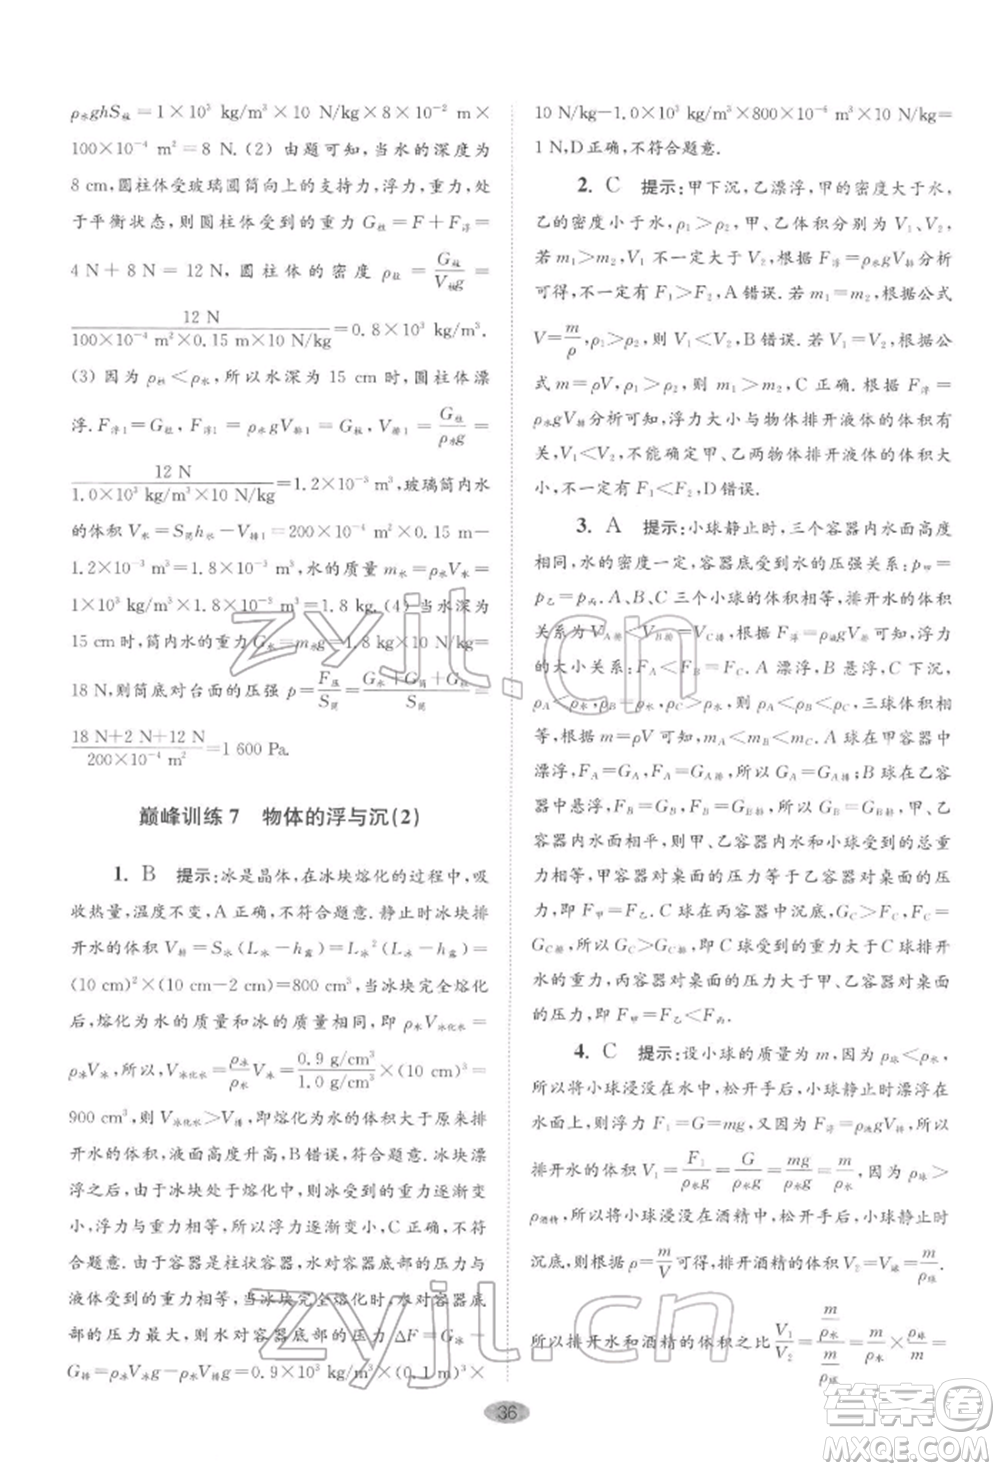 ρ水ghS柱=1×10³ kg/m³×10 N/kg×8×10⁻² m×
100×10⁻⁴ m²=8 N.(2) 由题可知,当水的深度为
8 cm,圆柱体受玻璃圆筒向上的支持力,浮力,重力,处
于平衡状态,则圆柱体受到的重力 G柱=F+F浮=
4 N+8 N=12 N,圆柱体的密度 ρ柱=G柱/V柱g=
12 N/(100×10⁻⁴ m²×0.15 m×10 N/kg)=0.8×10³ kg/m³.
(3) 因为 ρ柱<ρ水,所以水深为 15 cm 时,圆柱体漂
浮.F浮1=G柱,F浮1=ρ水gV排1=G柱,V排1=G柱/ρ水g=
12 N/(1.0×10³ kg/m³×10 N/kg)=1.2×10⁻³ m³,玻璃筒内水
的体积 V水=S筒h水-V排1=200×10⁻⁴ m²×0.15 m-
1.2×10⁻³ m³=1.8×10⁻³ m³,水的质量 m水=ρ水V水=
1.0×10³ kg/m³×1.8×10⁻³ m³=1.8 kg.(4) 当水深为
15 cm时,筒内水的重力 G水=m水g=1.8 kg×10 N/kg=
18 N,则筒底对台面的压强 p=F压/S筒=(G水+G筒+G柱)/S筒=
(18 N+2 N+12 N)/(200×10⁻⁴ m²)=1 600 Pa.
巅峰训练 7 物体的浮与沉(2)
1. B 提示:冰是晶体,在冰块熔化的过程中,吸
收热量,温度不变,A正确,不符合题意.静止时冰块排
开水的体积 V排=S冰(L冰-h露)=L冰²(L冰-h露)=
(10 cm)²×(10 cm-2 cm)=800 cm³,当冰块完全熔化
后,熔化为水的质量和冰的质量相同,即 ρ水V冰化水=
ρ冰V冰,则 V冰化水=ρ冰/ρ水 V冰=(0.9 g/cm³)/(1.0 g/cm³)×(10 cm)³=
900 cm³,则 V冰化水>V排,即熔化为水的体积大于原来排
开水的体积,液面高度升高,B错误,符合题意.冰块漂
浮之后,由于冰块处于熔化中,则冰块的重力逐渐变
小,浮力与重力相等,所以浮力逐渐变小,C正确,不符
合题意.由于容器是柱状容器,水对容器底部的压力与
液体的重力相等,当冰块完全熔化时,水对容器底
部的压力最大,则水对容器底部的压力 ΔF=G冰-
G排=ρ冰V冰g-ρ水V排g=0.9×10³ kg/m³×(0.1 m)³×
10 N/kg-1.0×10³ kg/m³×800×10⁻⁶ m³×10 N/kg=
1 N,D正确,不符合题意.
2. C 提示:甲下沉,乙漂浮,甲的密度大于水,
乙的密度小于水,ρ₁>ρ₂,甲、乙体积分别为 V₁、V₂,
若 m₁>m₂,V₁ 不一定大于 V₂,根据 F浮=ρ水gV排分析
可得,不一定有 F₁>F₂,A错误.若 m₁=m₂,根据公式
V=m/ρ,ρ₁>ρ₂,则 V₁<V₂,B错误.若 V₁=V₂,根据公
式 m=ρV,ρ₁>ρ₂,则 m₁>m₂,C 正确.根据 F浮=
ρ水gV排分析可知,浮力大小与物体排开液体的体积有
关,V₁<V₂,不能确定甲、乙两物体排开水的体积大
小,不一定有 F₁<F₂,D错误.
3. A 提示:小球静止时,三个容器内水面高度
相同,水的密度一定,容器底受到水的压强关系:p甲=
p乙=p丙.A、B、C 三个小球的体积相等,排开水的体积
关系为 VA排<VB排=VC排,根据 F浮=ρ水gV排可知,浮力
的大小关系:FA<FB=FC.A 漂浮,B 悬浮,C 下沉,
则 ρA<ρ水,ρB=ρ水,ρC>ρ水,所以 ρA<ρB<ρC,三球体积相
等,根据 m=ρV 可知 mA<mB<mC.A 球在甲容器中
漂浮,FA=GA=GA排,所以 GA=GA排.B 球在乙容器
中悬浮,FB=GB=GB排,所以 GB=GB排,由于甲、乙
容器内水面相平,所以甲容器对桌面的压力等于乙容
器对桌面的压力,即 F甲=F乙.C球下沉到底,GC>FC=
GC排,所以 GC>GC排,即 C 球受到的重力大于C球排开
水的重力,丙容器对桌面的压力大于甲、乙容器对桌面
的压力,即 F甲=F乙<F丙.
4. C 提示:设小球的质量为 m,因为 ρ球<ρ水,
所以将小球浸没在水中,松开手后,小球静止时漂浮在
水中,则浮力 F₁=G=mg,又因为 F浮=ρ液gV排,所以
排开水的体积 V₁=F₁/ρ水g=G/ρ水g=mg/ρ水g=m/ρ水,因为 ρ球>
ρ酒精,所以将小球浸没在酒精中,松开手后,小球静止时
沉底,则根据 ρ=m/V 可得,排开酒精的体积 V₂=V球=m/ρ球,
所以排开水和酒精的体积之比 V₁/V₂=(m/ρ水)/(m/ρ球)=m/ρ水×ρ球/m=
36
zyjl.cn
zyjl.cn
答案圈
MXQE.COM